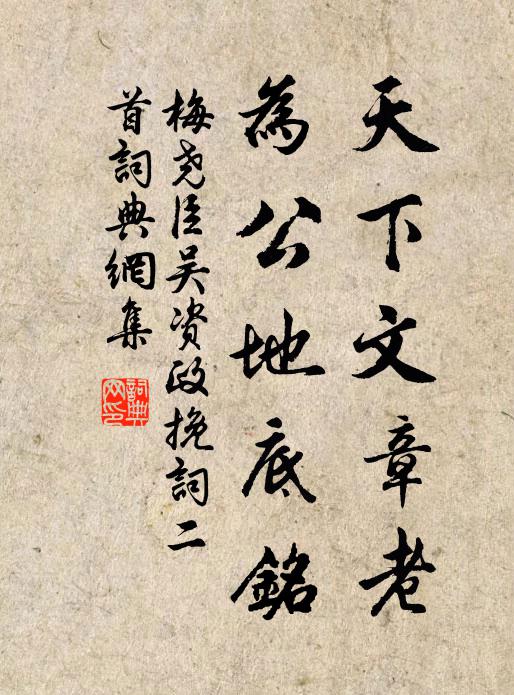 天下文章老
為公地底銘
梅尧臣吴资政挽詞二
首詞典網集
詞典
网印